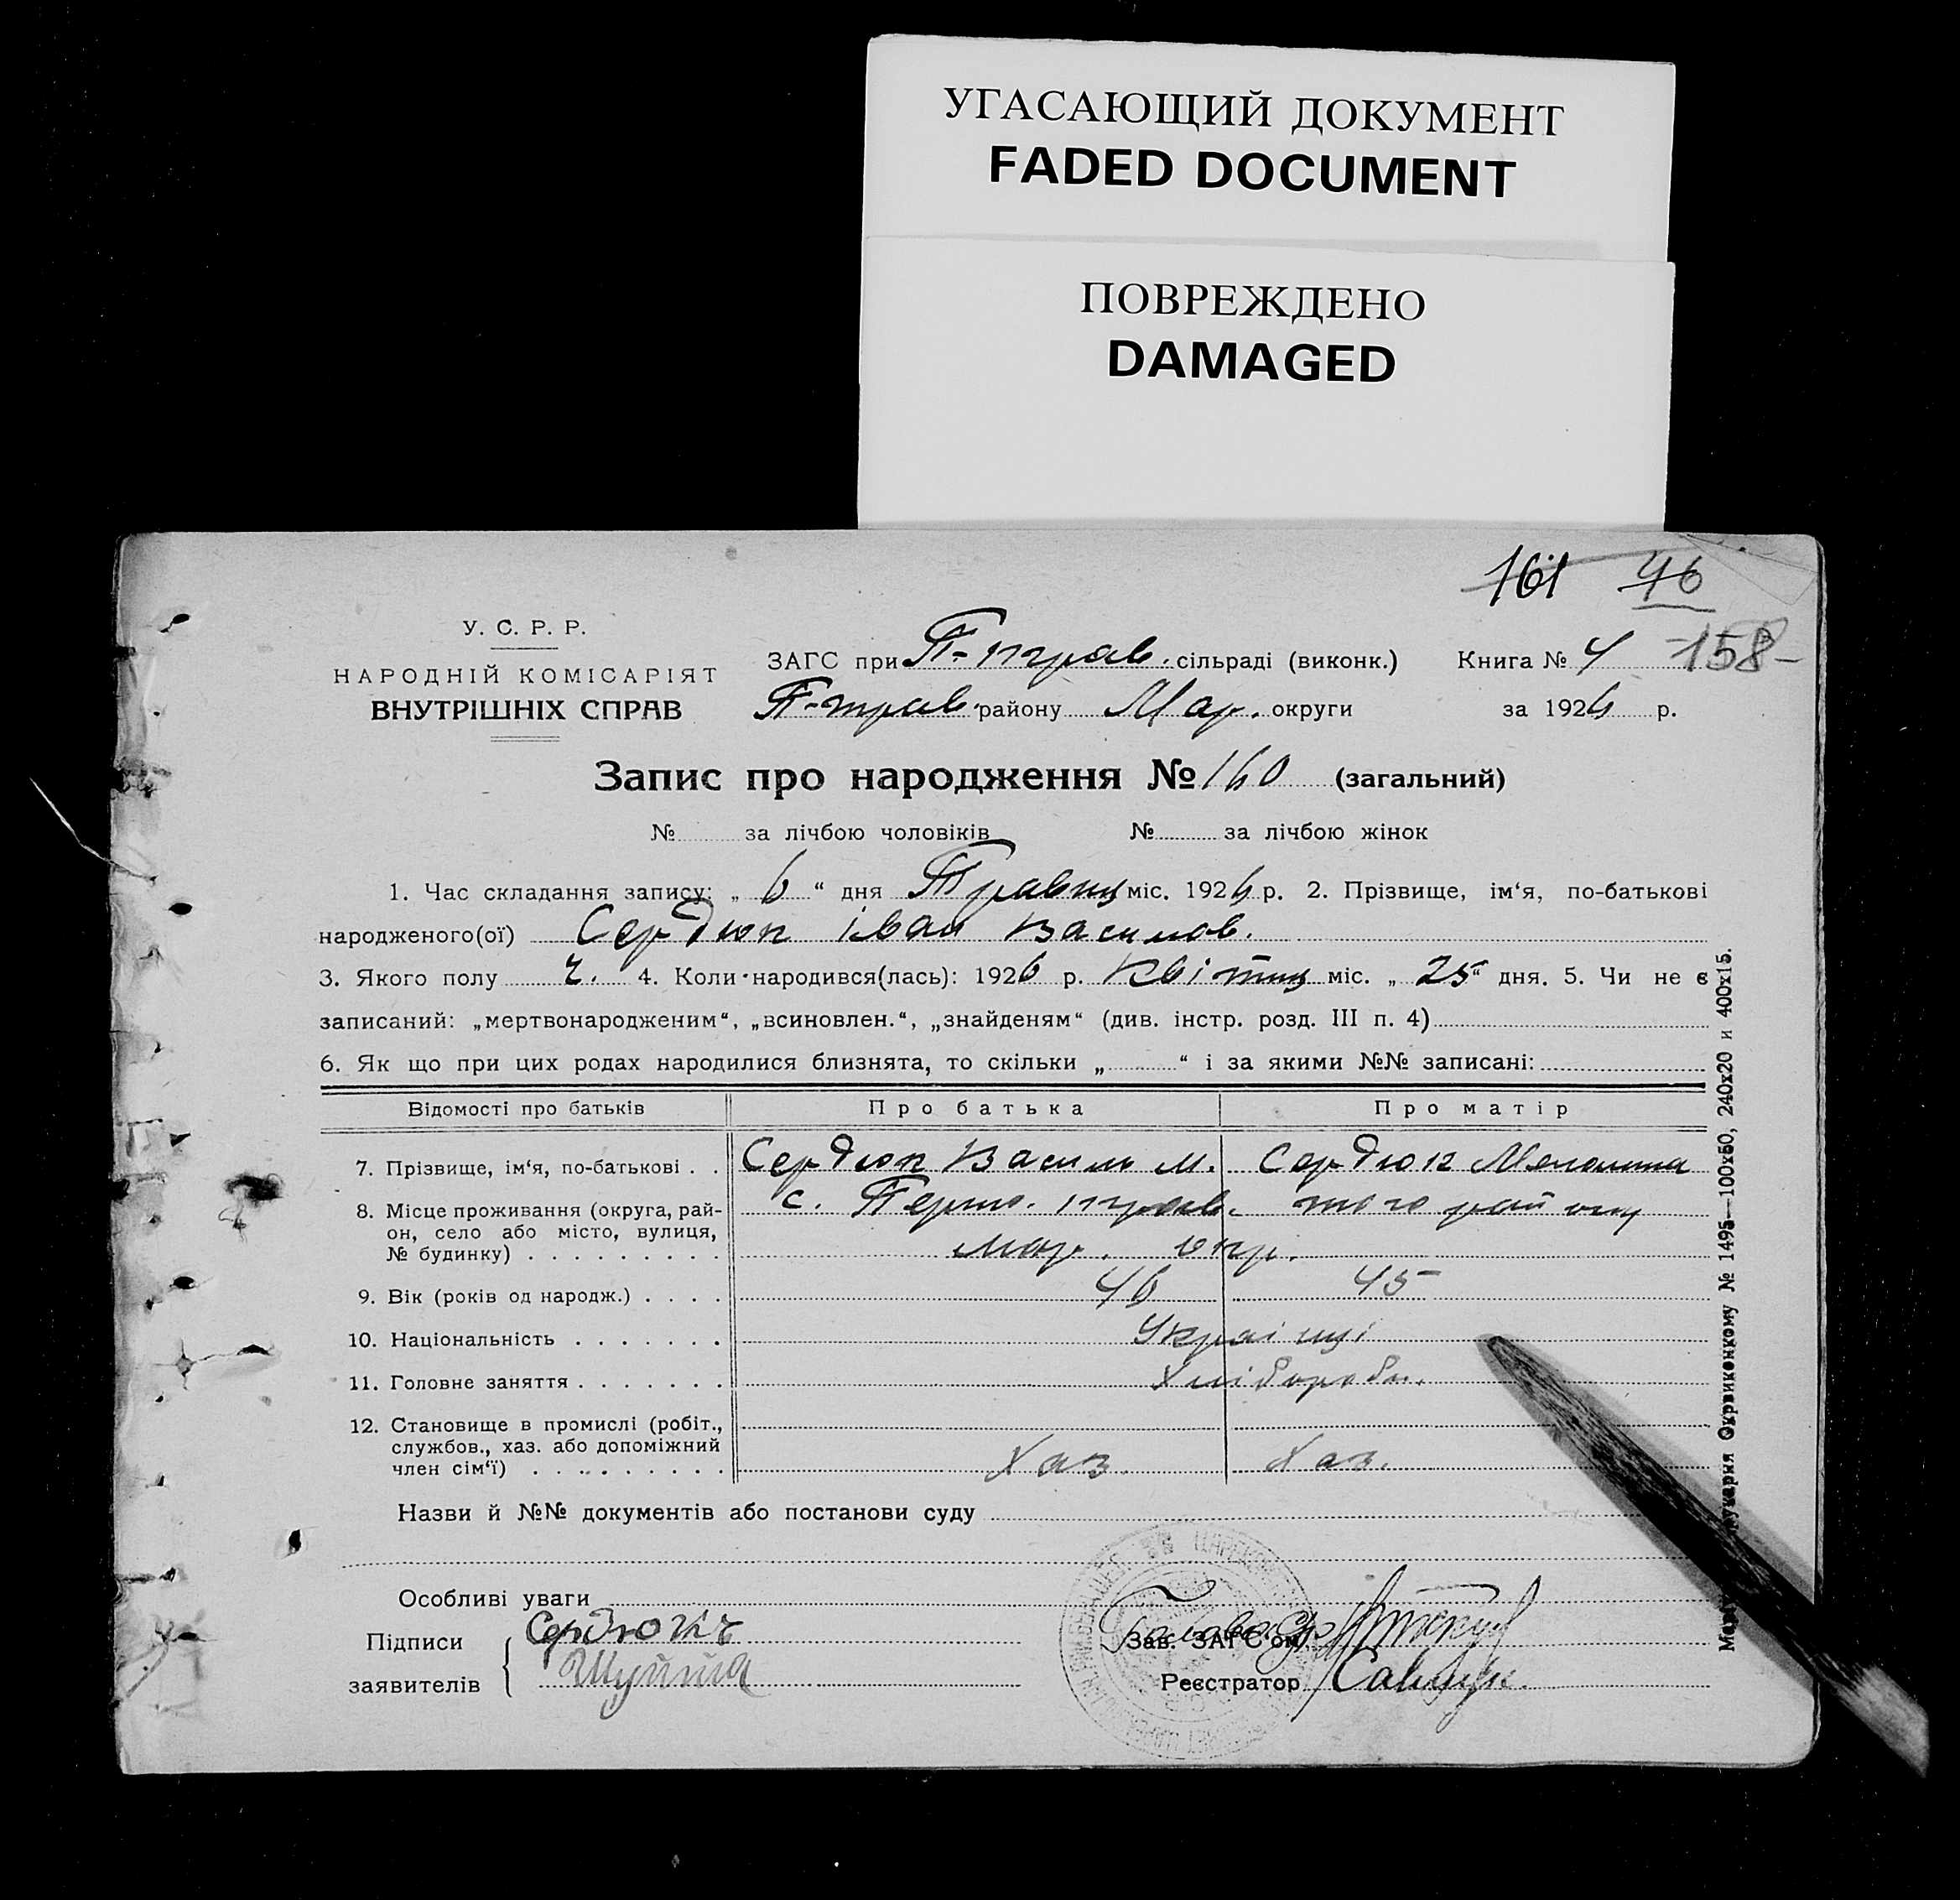 УГАСАЮЩИЙ ДОКУМЕНТ
FADED DOCUMENT
ПОВРЕЖДЕНО
DAMAGED
161 46
У. С. Р. Р.
НАРОДНІЙ КОМІСАРІЯТ
ВНУТРІШНІХ СПРАВ
ЗАГС при П-трав. сільраді (виконк.) Книга № 4 -158-
П-трав. району Мар. округи за 1926 р.
Запис про народження № 160 (загальний)
№ за лічбою чоловіків № за лічбою жінок
1. Час складання запису: „ 6 “ дня Травня міс. 1926 р. 2. Прізвище, ім‘я, по-батькові
народженого(ої) Сердюк Іван Василов.
3. Якого полу ч. 4. Коли народився(лась): 1926 р. Квітня міс. „ 25 “ дня. 5. Чи не є
записаний: „мертвонародженим“, „всиновлен.“, „знайденям“ (див. інстр. розд. III п. 4)
6. Як що при цих родах народилися близнята, то скільки „ “ і за якими №№ записані:
Відомості про батьків Про батька Про матір
7. Прізвище, ім‘я, по-батькові . . Сердюк Василь М. Сердюк
8. Місце проживання (округа, рай-
он, село або місто, вулиця,
№ будинку) . . . . . . . . .
с. Перто. трав. того району
мар. окр.
9. Вік (років од народж.) . . . . 46 45
10. Національність . . . . . . . Українці
11. Головне заняття . . . . . . . Хлібороби.
12. Становище в промислі (робіт.,
службов., хаз. або допоміжний
член сім‘ї) . . . . . . . . .
Хаз. Хаз.
Назви й №№ документів або постанови суду
Особливі уваги
Підписи Сердюкъ
заявителів
Зав. ЗАГС‘ом
Реєстратор
Окрвиконкому № 1495—100х60, 240х20 и 400х15.